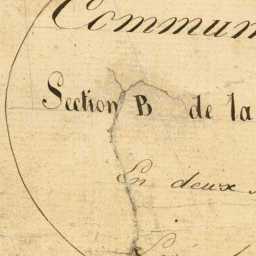 Commun
Section B de la
En deux